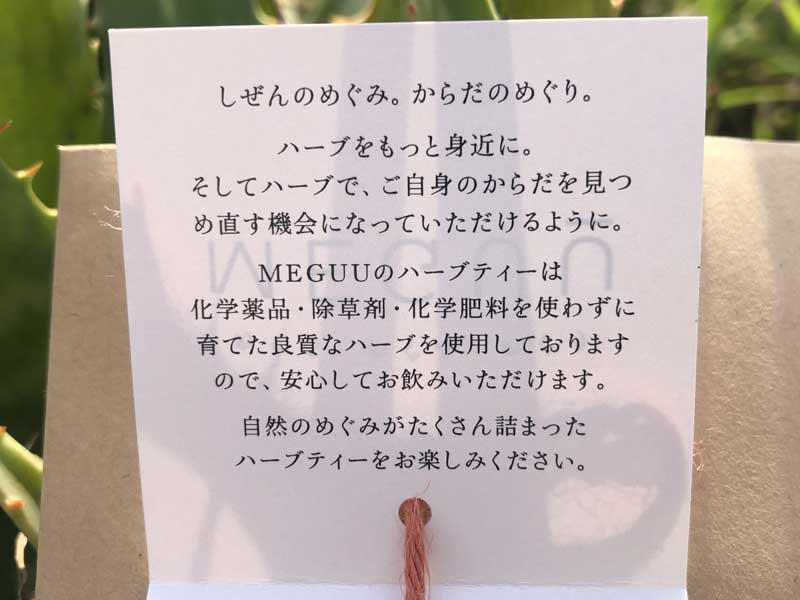 しぜんのめぐみ。からだのめぐり。
ハーブをもっと身近に。
そしてハーブで、ご自身のからだを見つ
め直す機会になっていただけるように。
MEGUUのハーブティーは
化学薬品・除草剤・化学肥料を使わずに
育てた良質なハーブを使用しております
ので、安心してお飲みいただけます。
自然のめぐみがたくさん詰まった
ハーブティーをお楽しみください。
MEGUU